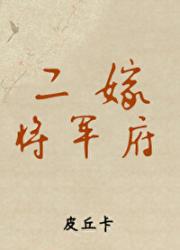 二嫁
将军府
皮丘卡